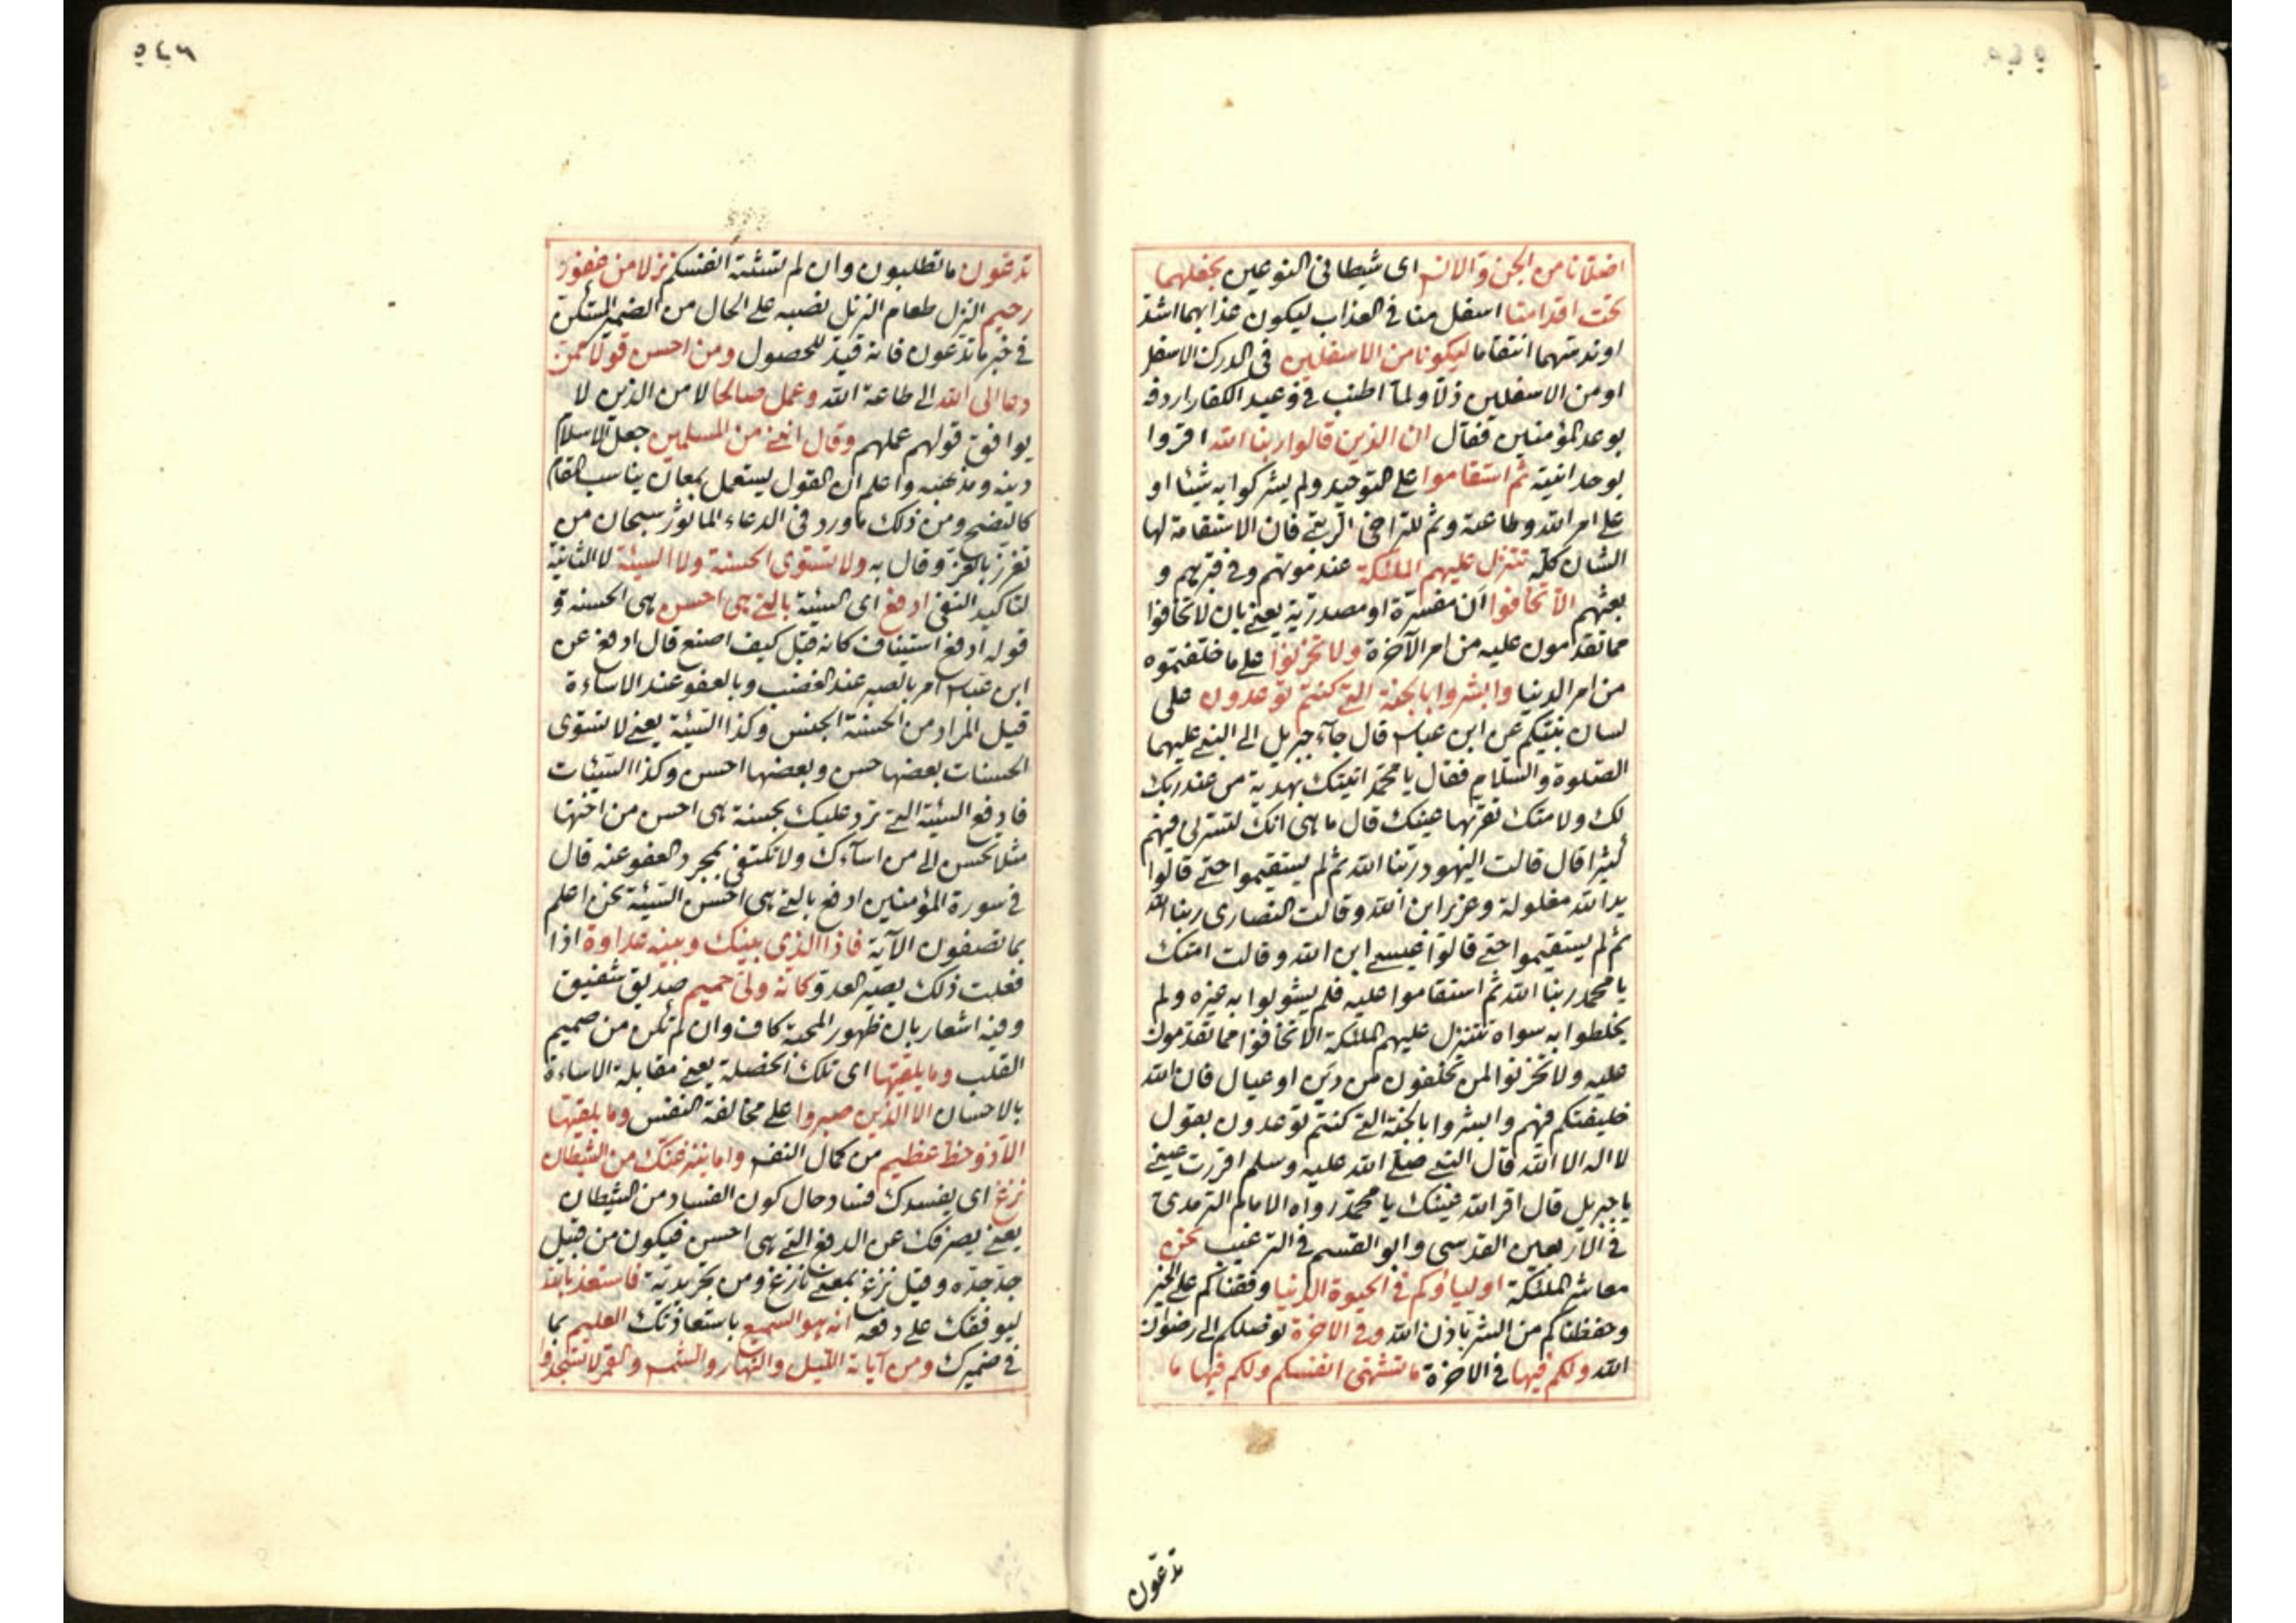 اضلانا من الجن والانس اى شيطانى النوعين نجعلهما
تحت اقدامنا اسفل منا فى العذاب ليكون عذابهما اشد
او ندسهما انتقاما ليكونا من الاسفلين فى الدرك الاسفل
او من الاسفلين ذلا ولما اطنب فى وعيد الكفار اردفه
بوعد المؤمنين فقال ان الذين قالوا ربنا الله اقروا
بوحدانيته ثم استقاموا على التوحيد ولم يشركوا به شيئا او
على امر الله وطاعته وثم للتراخى الرتبى فان الاستقامة لها
الشان كله تتنزل عليهم الملئكة عند موتهم وفى قبرهم و
بعثهم الا تخافوا ان مفسرة او مصدرية يعنى بان لا تخافوا
مما تقدمون عليه من امر الآخرة ولا تحزنوا على ما خلفتموه
من امر الدنيا وابشروا بالجنة التى كنتم توعدون على
لسان نبيكم عن ابن عباس قال جآء جبريل الى النبى عليهما
الصلوة والسلام فقال يا محمد اتيتك بهدية من عند ربك
لك ولامتك تقر بها عينك قال ما هى انك لتسرلى فهم
كثيرا قال قالت اليهود ربنا الله ثم لم يستقيموا حتى قالوا
يد الله مغلولة وعزير ابن الله وقالت النصارى ربنا الله
ثم لم يستقيموا حتى قالوا عيسى ابن الله وقالت امتك
يا محمد ربنا الله ثم استقاموا عليه فلم يشولوا به غيره ولم
يخلطوا به سواه تتنزل عليهم الملئكة الا تخافوا مما تقدمون
عليه ولا تحزنوا لمن تخلفون من دين او عيال فان الله
خليفتكم فهم وابشروا بالجنة التى كنتم توعدون بقول
لا اله الا الله قال النبى صلى الله عليه وسلم اقررت عينى
يا جبريل قال اقر الله عينك يا محمد رواه الامام الترمذى
فى الاربعين القدسى وابو القسم فى الترغيب نحن
معاشر الملئكة اولياؤكم فى الحيوة الدنيا وفقناكم على الخير
وحفظناكم من الشر باذن الله وفى الاخرة نوصلكم الى رضوان
الله ولكم فيها فى الاخرة ما تشتهى انفسكم ولكم فيها ما
تدعون
٥٤٦
تدعون ما تطلبون وان لم تشتة انفسكم نزلا من غفور
رحيم النزل طعام النزيل نصبه على الحال من الضمير المستكن
فى خبر ما تدعون فانه قيد للحصول ومن احسن قولا ممن
دعا الى الله الى طاعة الله وعمل صالحا لا من الذين لا
يوافق قولهم عملهم وقال اننى من المسلمين جعل الاسلام
دينه ومذهبه واعلم ان القول يستعمل بمعان يناسب المقام
كالتضح ومن ذلك ما ورد فى الدعاء الماثور سبحان من
تعزز بالعز وقال به ولا تستوى الحسنة ولا السيئة لا الثانية
لتاكيد النفى ادفع اى السيئة بالتى هى احسن هى الحسنة و
قوله ادفع استيناف كانه قيل كيف اصنع قال ادفع عن
ابن عباس امر بالصبر عند الغضب وبالعفو عند الاساءة
قيل المراد من الحسنة الجنس وكذا السيئة يعنى لا تستوى
الحسنات بعضها حسن وبعضها احسن وكذا السيئات
فادفع السيئة التى ترد عليك بحسنة هى احسن من اختها
مثلا تحسن الى من اسآءك ولا تكتفى بمجرد العفو عنه قال
فى سورة المؤمنين ادفع بالتى هى احسن السيئة نحن اعلم
بما تصفون الآية فاذا الذى بينك وبينه عداوة اذا
فعلت ذلك يصير العدو كانه ولى حميم صديق شفيق
وفيه اشعار بان ظهور المحبة كاف وان لم تكن من صميم
القلب وما يلقيها اى تلك الخصلة يعنى مقابلة الاساءة
بالاحسان الا الذين صبروا على مخالفة النفس وما يلقيها
الا ذو حظ عظيم من كمال النفس واما ينزغنك من الشيطان
نزغ اى يفسدك فساد حال كون الفساد من الشيطان
يعنى يصرفك عن الدفع التى هى احسن فيكون من قبيل
جد جده وقيل نزغ بمعنى نازغ ومن تجريدية فاستعذ بالله
ليوفقك على دفعه انه هو السميع باستعاذتك العليم بما
فى ضميرك ومن آياته الليل والنهار والشمس والقمر لا تسجدوا